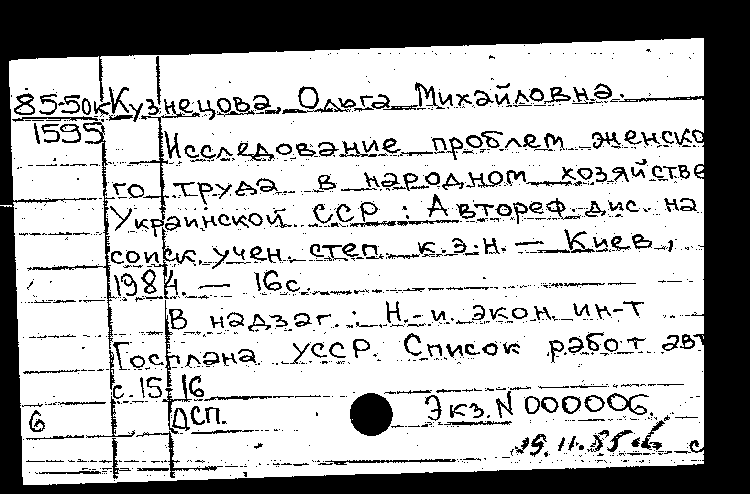 85-50к Кузнецова, Ольга Михайловна.
1595
Исследование проблем женско
го труда в народном хозяйстве
Украинской ССР : Автореф. дис. на
соиск. учен. степ. к.э.н. — Киев,
1984. — 16с.
В надзаг.: Н.-и. экон. ин-т
Госплана УССР. Список работ авт
с. 15-16
6 ДСП. Экз. N 000006.
29.11.85